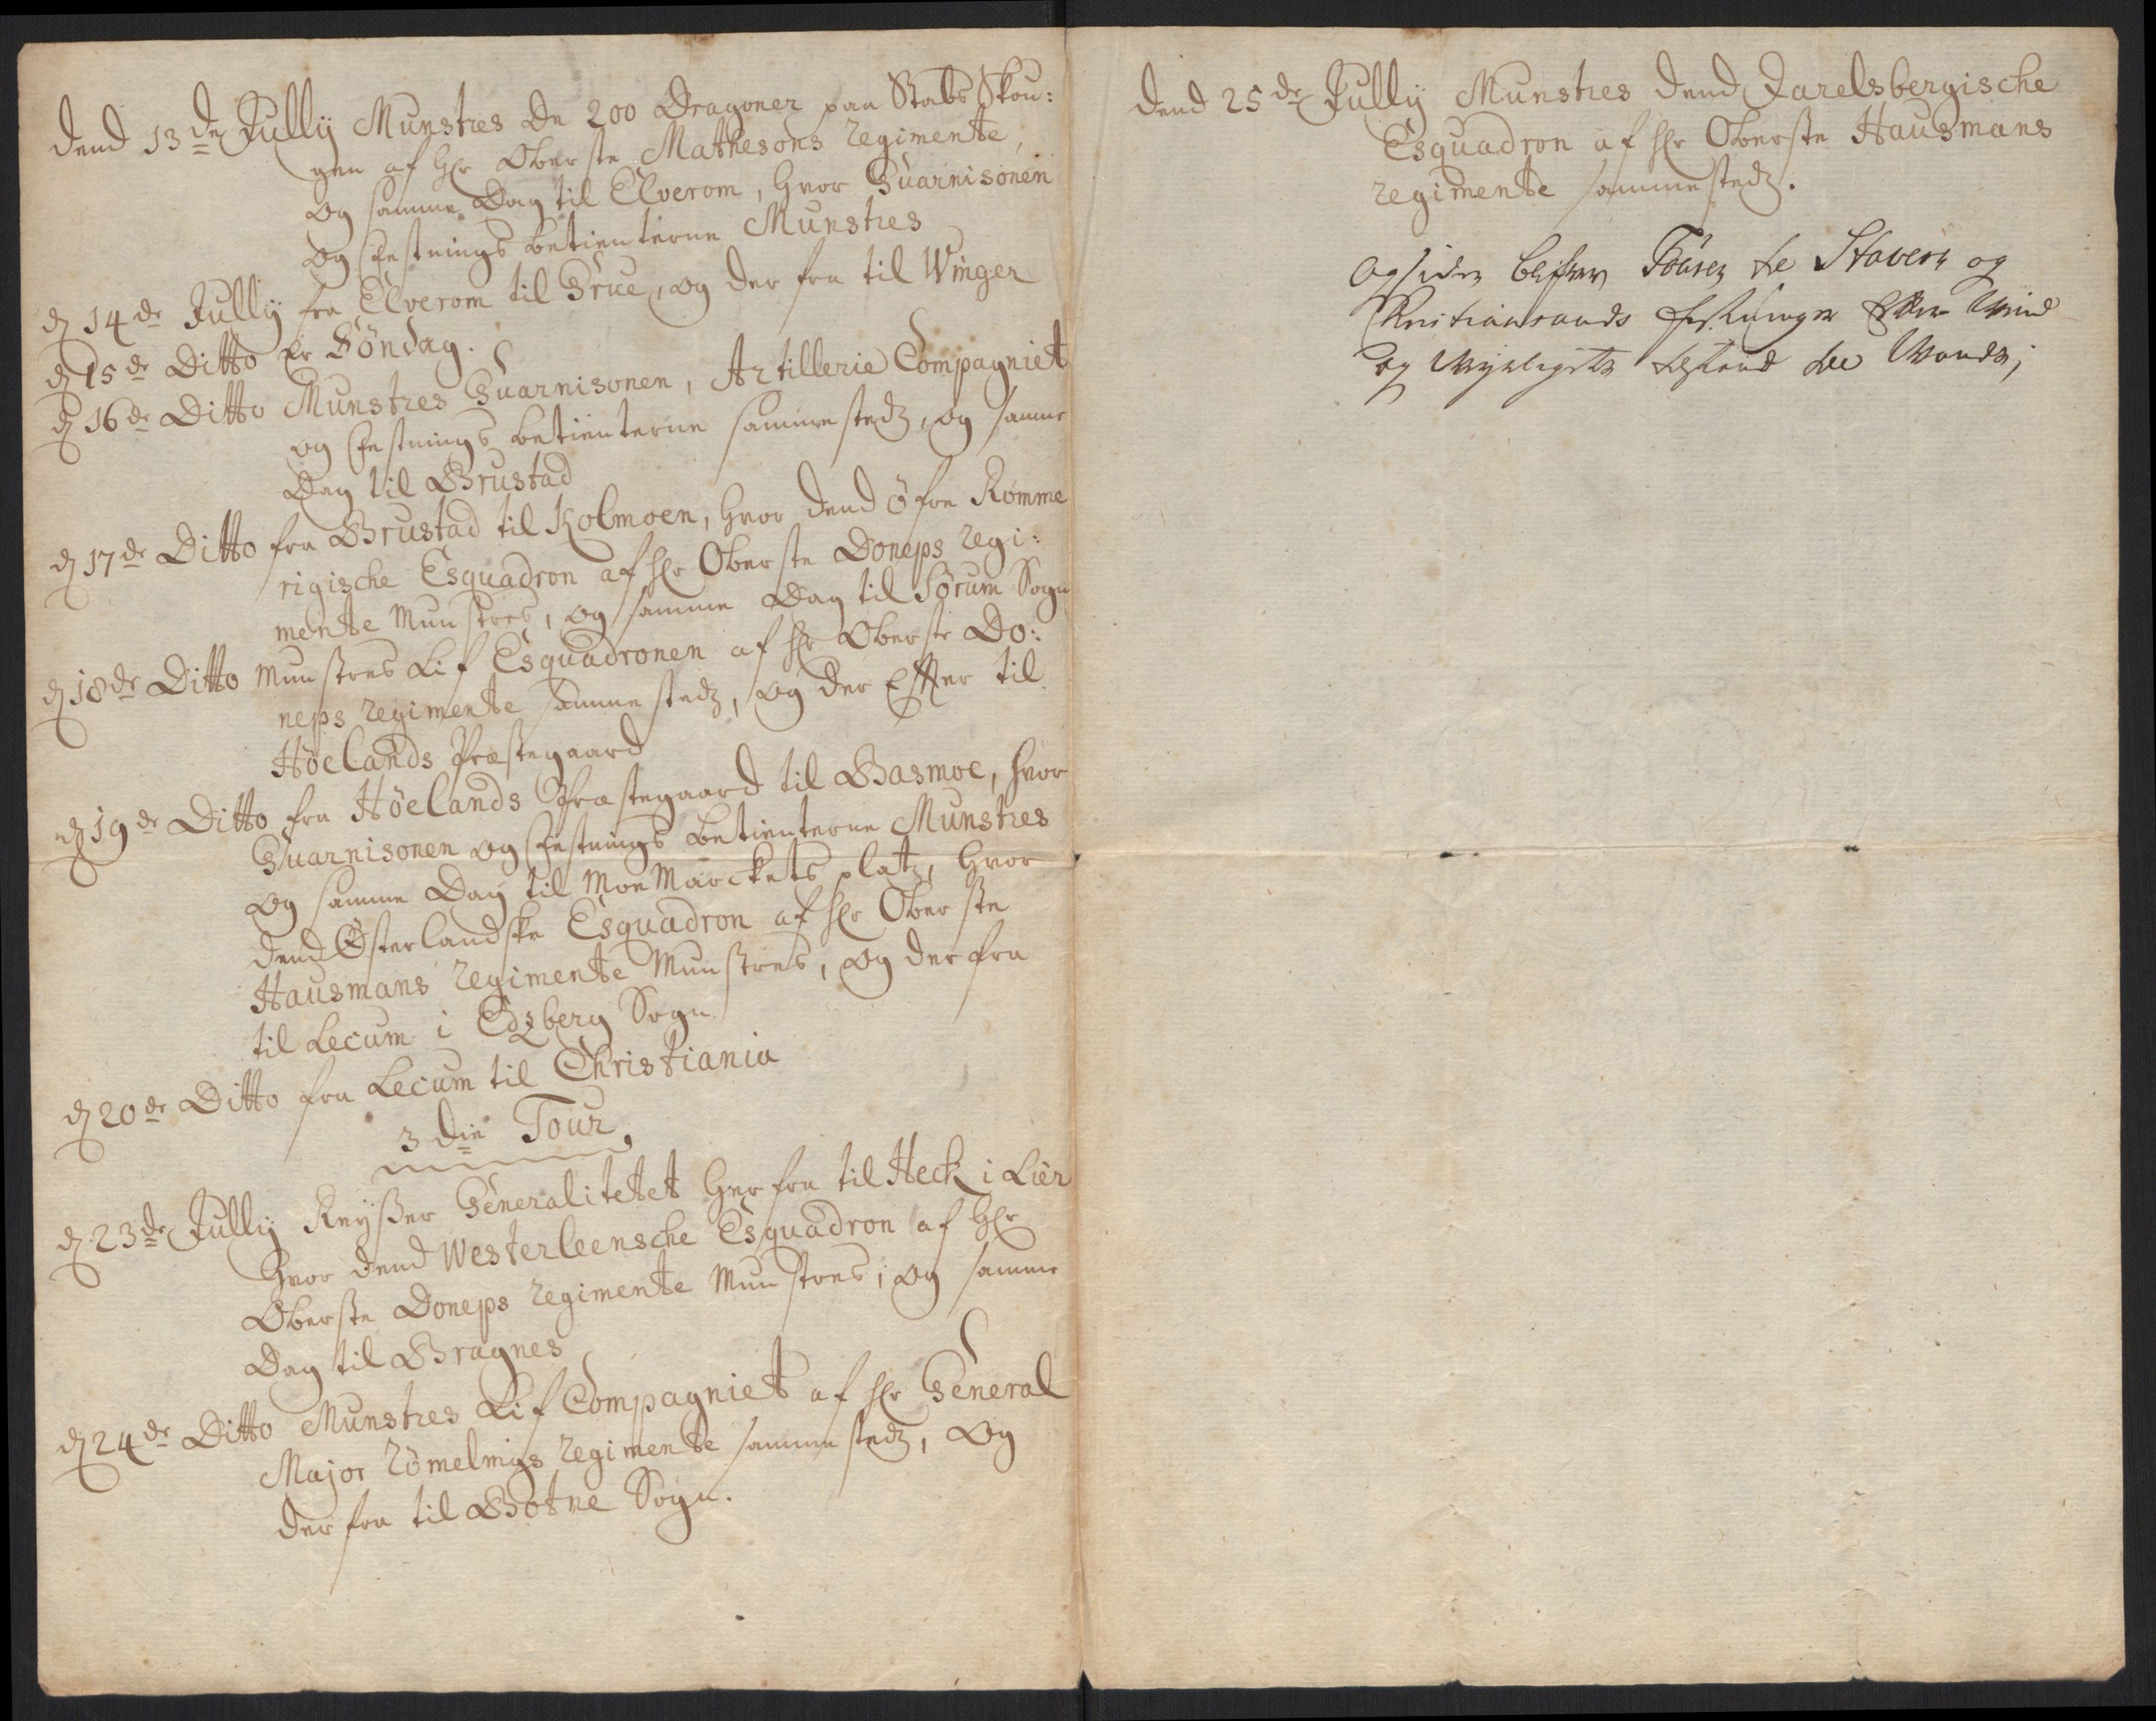 Dend 13de Jully Munstres De 200 Dragoner paa Stabs Skou:
gen af Hr Oberste Mathesons regimente,
og samme Dag til Elverom, hvor Guarnisonen
og Festnings betienterne Munstres
d 14de Jully fra Elverom til Grue, og der fra til Winger
d 15de Ditto Er Söndag.
d 16de Ditto Munstres Guarnisonen, Artillerie Compagniet
og Festnings betienterne sammestedz, og samme
Dag til Brustad
d 17de Ditto fra Brustad til Kolmoen, hvor dend öfre Romme
rigische Esquadron af Hr Oberste Doneps regi:
mente Munstres, og samme Dag til Sörum Sogn
d 18de Ditto Munstres Lif Esquadronen af Hr Oberste Do:
neps regimente sammestedz, og der Effter til
Höelands Præstegaard
d 19de Ditto fra Höelands Præstegaard til Basmoe, hvor
Guarnisonen og Festnings betienterne Munstres
og samme Dag til Moe Marckets platz, hvor
dend Österlandske Esquadron af Hr Oberste
Hausmans regimente Munstres, og der fra
til Lecum i Edzberg Sogn
d 20de Ditto fra Lecum til Christiania
3die Tour,
d 23de Jully Reyßer Generalitetet her fra til Heck i Lier
hvor dend Westerleensche Esquadron af Hr
Oberste Doneps regimente Munstres; og samme
Dag til Bragnes
d 24de Ditto Munstres Lif Compagniet af Hr General
Major Römelings regimente sammestedz, og
der fra til Botne Sogn.
Dend 25de Jully Munstres dend Jarelsbergische
Esquadron af Hr Oberste Hausmans
regimente sammestedz.
og siden blifver Touren te Stavern og
Christiansands festninger Efter Wind
og til Wands;